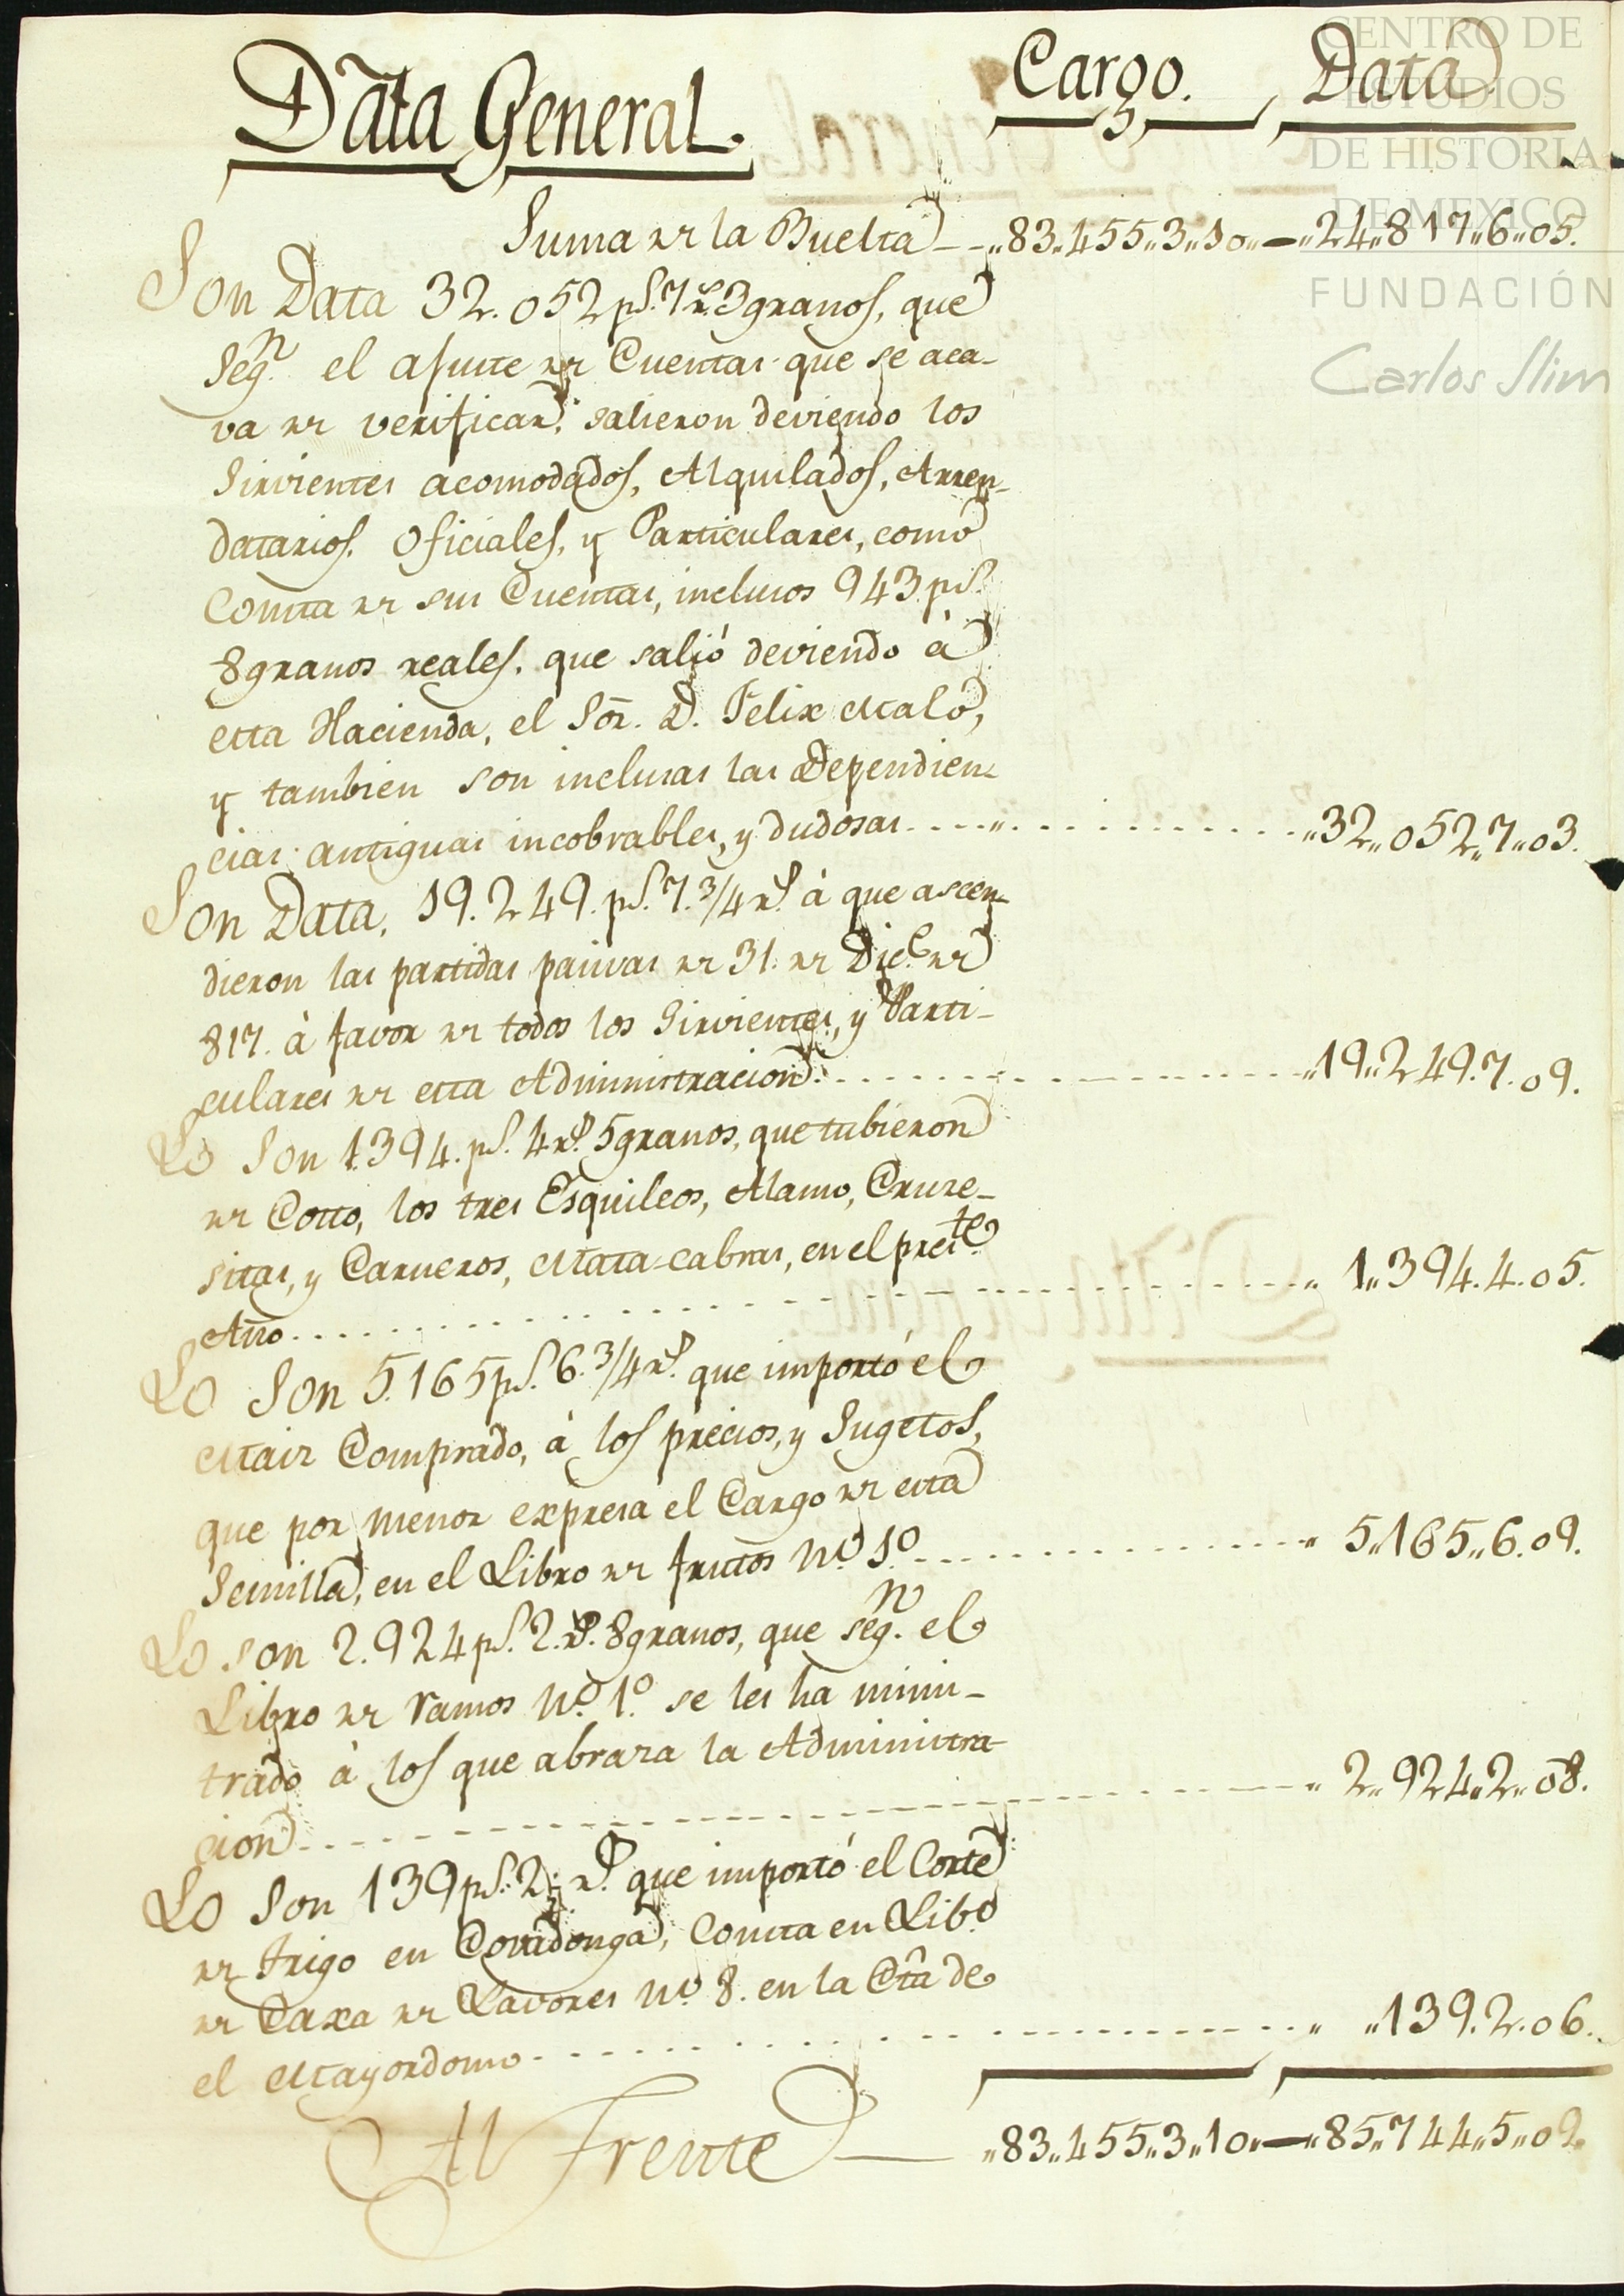 Cargo. Data
Data General.
Suma de la Buelta - - „83„455„3„10„ — „24„817„6„05.
Son Data 32.052 pS. 7 rS. 3 granos, que
Segn. el ajuste de Cuentas que se aca-
va de verificar, salieron deviendo los
Sirvientes acomodados, Alquilados, Arren-
datarios, Oficiales, y Particulares, como
Consta de sus Cuentas, inclusos 943 pS.
8 granos reales, que salió deviendo à
esta Hacienda, el Sor. D. Felix Malo,
y tambien son inclusas las Dependien-
cias antiguas incobrables, y dudosas . . . . „ . . . . . . . . „32„052„7„03.
Son Data, 19.249. pS. 7. 3/4 rS. à que ascen-
dieron las partidas pasivas de 31. de Dice. de
817. à favor de todos los Sirvientes, y Parti-
culares de esta Administracion . . . . . . . . „19„249.7.09.
Lo Son 1.394. pS. 4 rS. 5 granos, que tubieron
de Costo, los tres Esquileos, Alamo, Cruze-
sitas, y Carneros, Mata-cabras, en el preste.
Año . . . . . . . . . . . . „ 1„394.4.05.
Lo Son 5.165 pS. 6. 3/4 rS. que importó el
Maiz Comprado, à los precios, y Sugetos,
que por menor expresa el Cargo de esta
Semilla, en el Libro de frutos No. 1o. . . . . . . . „ 5„165„6.09.
Lo son 2.924 pS. 2. rS. 8 granos, que segn. el
Libro de Ramos No. 1o. se les ha minis-
trado à los que abraza la Administra-
cion . . . . . . . . . . . . „ 2„924„2„08.
Lo Son 139 pS. 2 1/2 rS. que importó el Corte
de trigo en Covadonga, Consta en Libo.
de Caxa de Lavores No. 8. en la Cta de
el Mayordomo . . . . . . . . . . „ „139.2.06.
Al Frente — „83„455„3„10„ — „85„744„5„09.
CENTRO DE
ESTUDIOS
DE HISTORIA
DE MEXICO
FUNDACIÓN
Carlos Slim